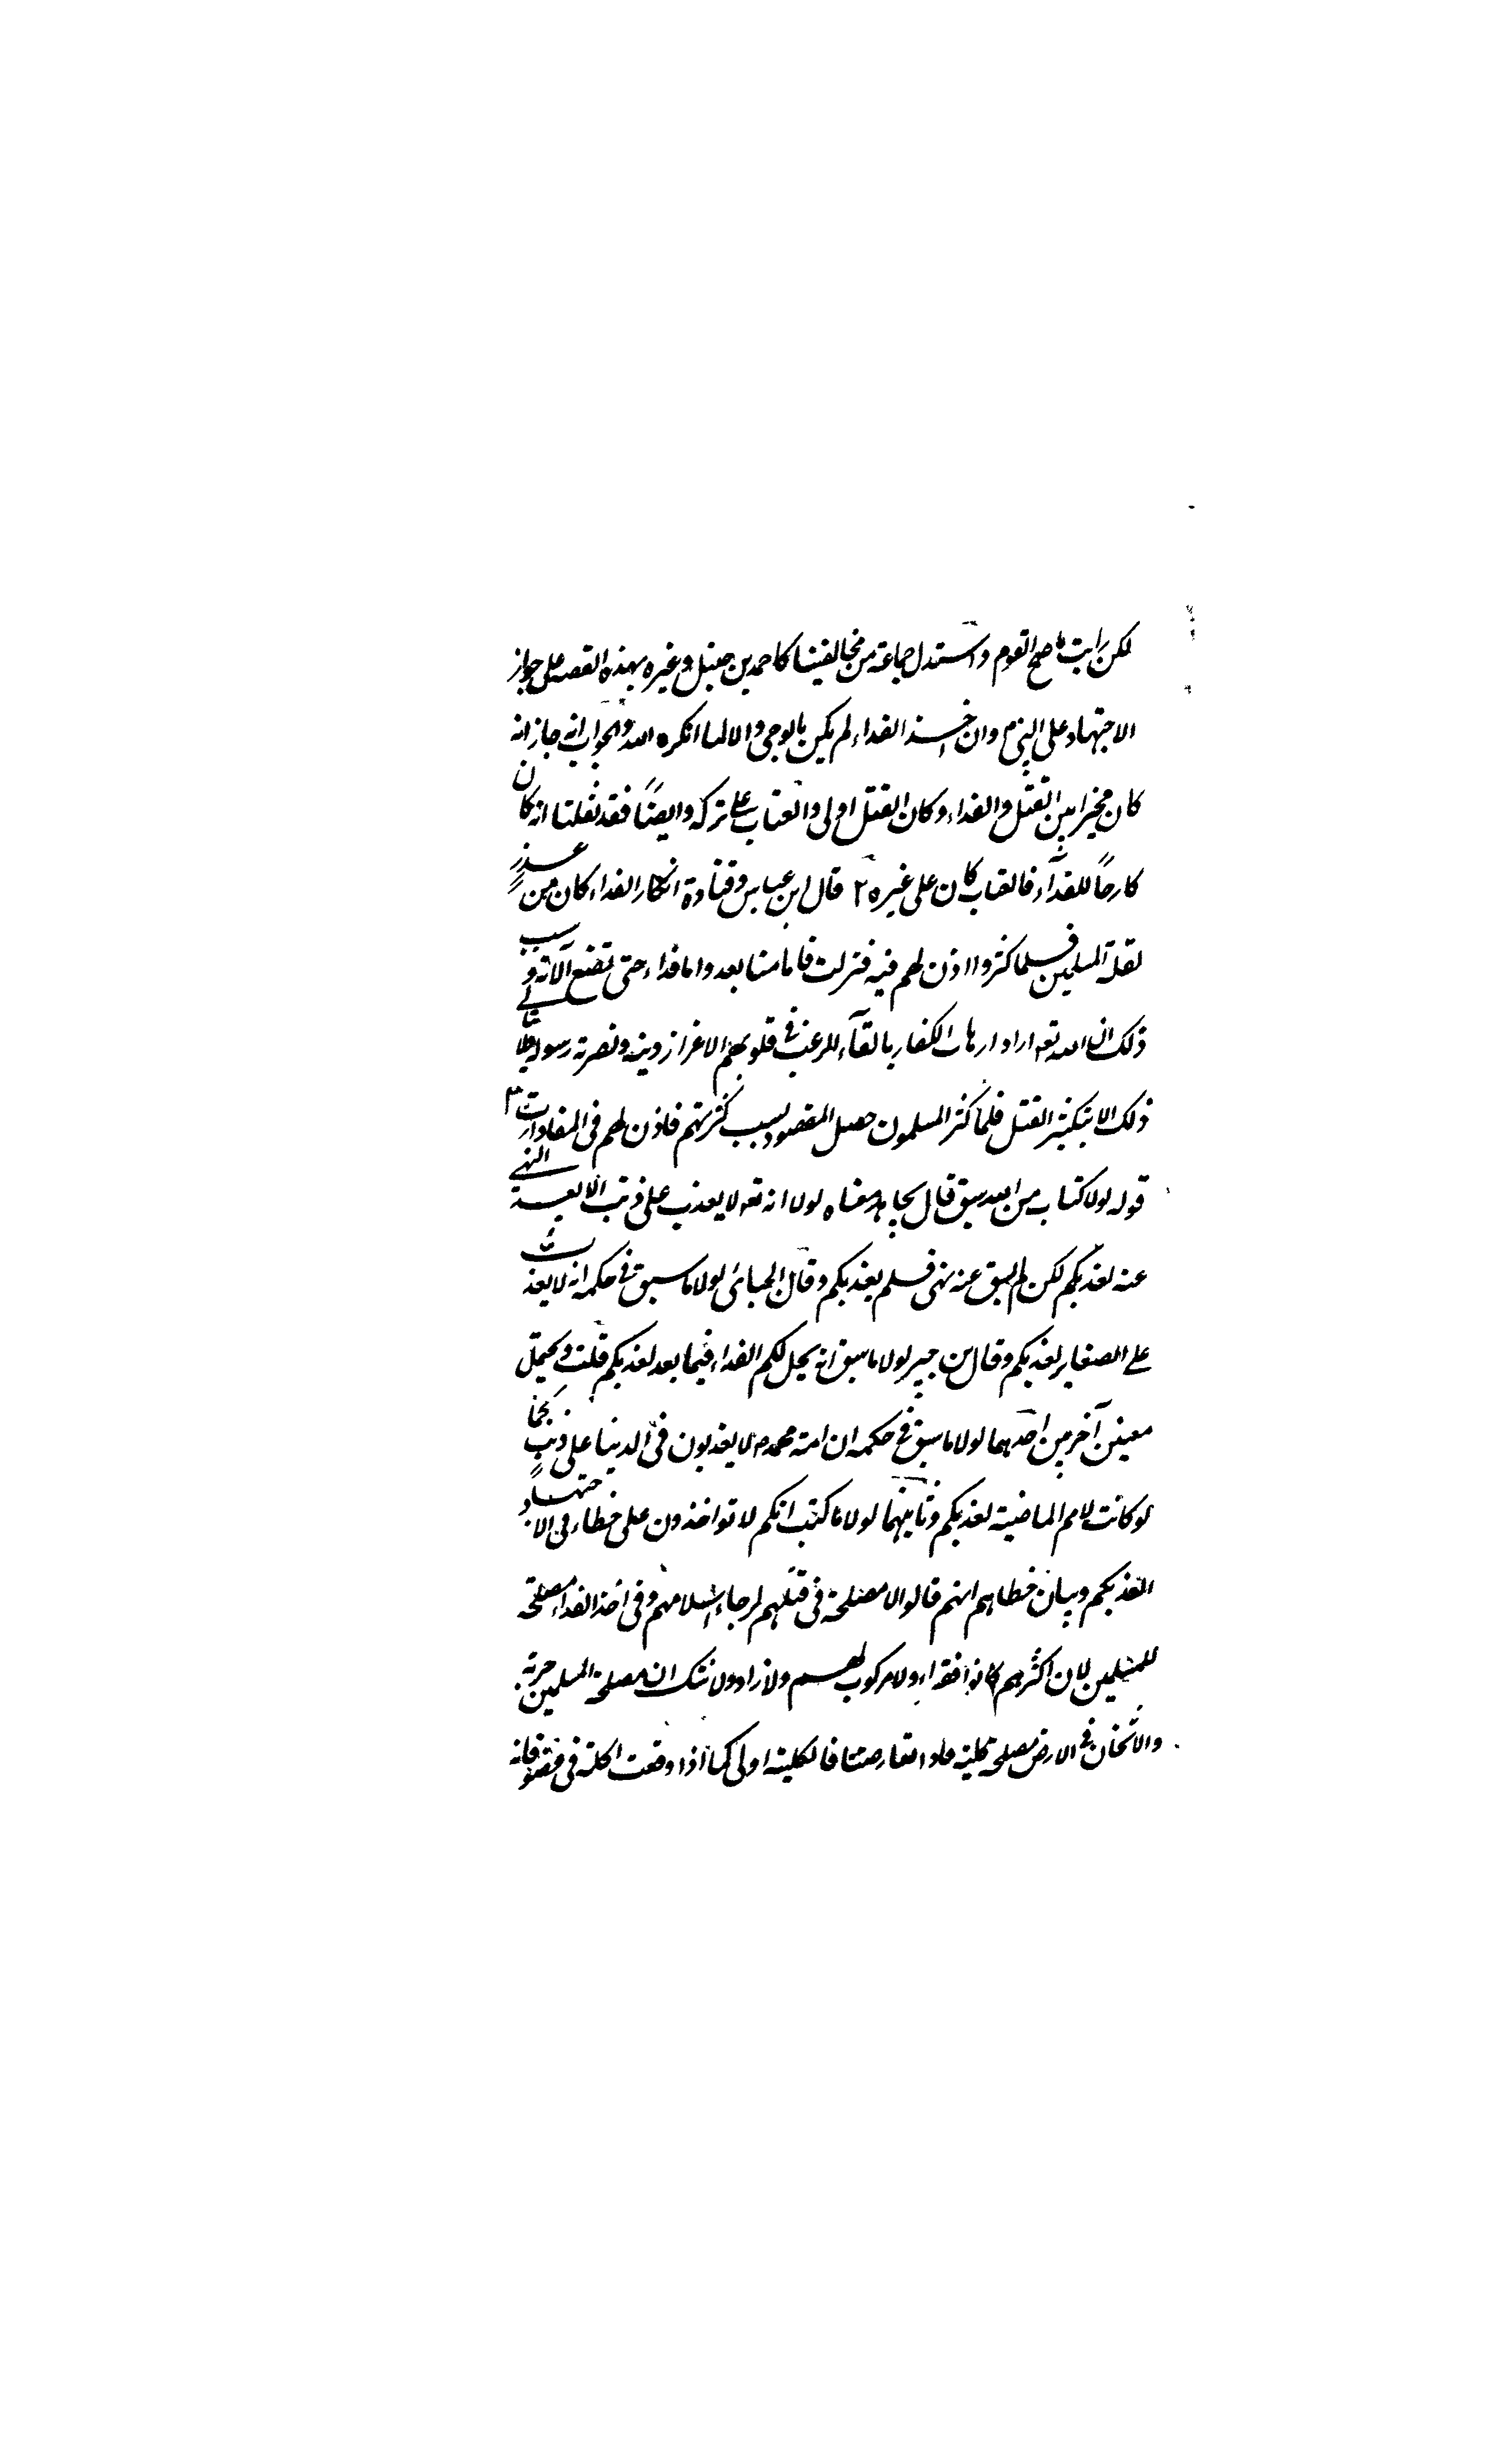 لكن رايت ما صح القوم واستدل جماعة من مخالفينا كاحمد بن حنبل وغيره بهذه القصه على جواز
الاجتهاد على النبى م وان اخذ الفداء لم يكن بالوحى والا لما انكره الله والجواب انه جاز انه
كان مخيرا بين القتل والفداء وكان القتل اولى والعتاب على تركه وايضًا فقد نقلنا انه كان
كارهًا للفداء فالعتاب كان على غيره ٢ قال ابن عباس وقتادة انكار الفداء كان من عذر
لقلة المسلمين فلما كثروا اذن لهم فيه فنزلت فاما منا بعد واما فداء حتى تضع الآية وسبب
ذلك ان الله تعه اراد ارهاب الكفار بالقآء الرعب فى قلوبهم لاعزاز دينه ونصرة رسوله ولا يتاتى
ذلك الا بتكثير القتل فلما كثر المسلمون حصل المقصود بسبب كثرتهم فاذن لهم فى المفادات ٣
قوله لولا كتاب من الله سبق قال مجاهد معناه لولا انه تعه لا يعذب على ذنب الا بعد النهى
عنه لعذبكم لكن لم يسبق عنه نهى فلم يعذبكم وقال الجبائى لولا ما سبق فى حكمه انه لا يعذب
على الصغاير لعذبكم وقال ابن جبير لولا ما سبق انه يحل لكم الفداء فيما بعد لعذبكم قلت ويحتمل
معنين آخرين احدهما لولا ما سبق فى حكمه ان امة محمد م لا يعذبون فى الدنيا على ذنب كما
لو كانت لامم الماضية لعذبكم وثانيهما لولا ما كتب انكم لا تواخذون على خطاء فى الاجتهاد
لعذبكم وبيان خطاهم انهم قالوا لا مصلحة فى قتلهم لرجاء اسلامهم وفى اخذ الفداء مصلحة
للمسلمين لان اكثرهم كانوا فقراء ولا مركوب لهم ولا زاد ولا شك ان مصلحة المسلمين جزئية
والاثخان فى الارض مصلحة كلية ولو تعارضتا فالكلية اولى كما اذا وقعت اكلة فى عضو فانه